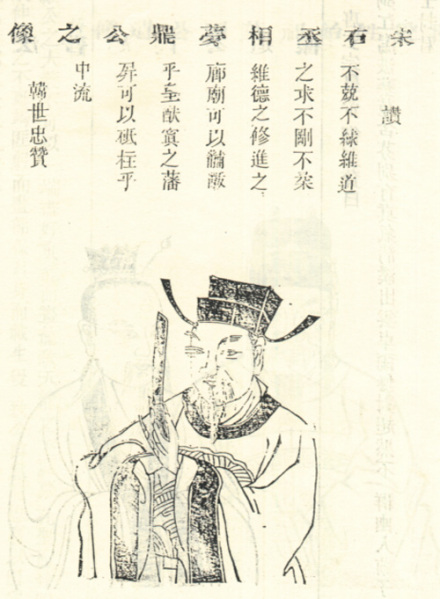 宋右丞相夢鼎公之像
讚
不競不絿維道
之求不剛不柔
維德之修進之
廊廟可以黼黻
乎皇猷寘之藩
屏可以砥柱乎
中流
韓世忠贊